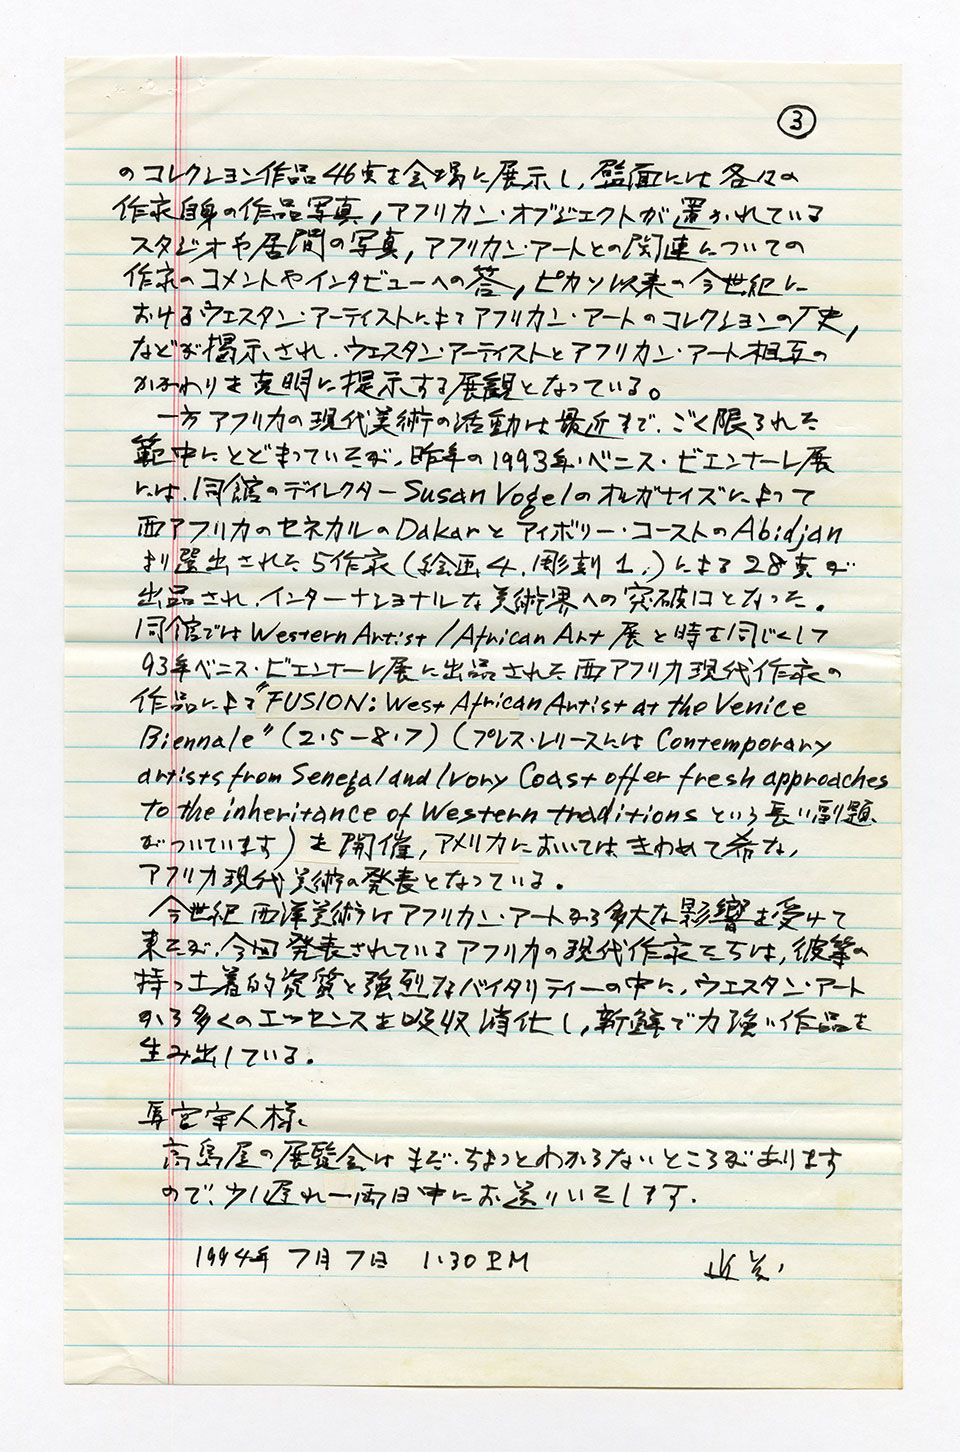 ③
のコレクション作品46点を会場に展示し, 壁面には各々の
作家自身の作品写真, アフリカン・オブジェクトが置かれている
スタジオや居間の写真, アフリカン・アートとの関連についての
作家のコメントやインタビューへの答, ピカソ以来の今世紀に
おけるウエスタン・アーティストによるアフリカン・アートのコレクションの歴史,
などが掲示され、ウエスタン・アーティストとアフリカン・アート相互の
かかわりを克明に提示する展観となっている。
一方アフリカの現代美術の活動は最近まで、ごく限られた
範中にとどまっていたが、昨年の1993年・ベニス・ビエンナーレ展
には、同館のディレクターSusan Vogelのオルガナイズによって
西アフリカのセネカルのDakarとアイボリー・コーストのAbidjan
より選出された5作家(絵画4、彫刻1、)による28点が
出品され、インターナショナルな美術界への突破口となった。
同館ではWestern Artist/African Art展と時を同じくして
93年ベニス・ビエンナーレ展に出品された西アフリカ現代作家の
作品による"FUSION: West African Artist at the Venice
Biennale"(2・5−8・7)(プレス・レリースには Contemporary
artists from Senegal and Ivory Coast offer fresh approaches
to the inheritance of Western traditions という長い副題
がついています)を開催, アメリカにおいてはきわめて希な、
アフリカ現代美術の発表となっている。
今世紀西洋美術はアフリカン・アートから多大な影響を受けて
来たが、今回発表されているアフリカの現代作家たちは, 彼等の
持つ土着的資質と強烈なバイタリティーの中に、ウエスタン・アート
から多くのエッセンスを吸収消化し, 新鮮で力強い作品を
生み出している。
馬宮宇人様
高島屋の展覧会はまだ、ちょっとわからないところがあります
ので、少し遅れ一両日中にお送りいたします.
1994年 7月7日 1:30 PM